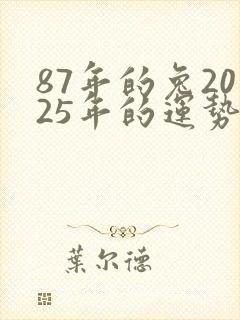 87年的兔20
25年的運勢
葉尔德